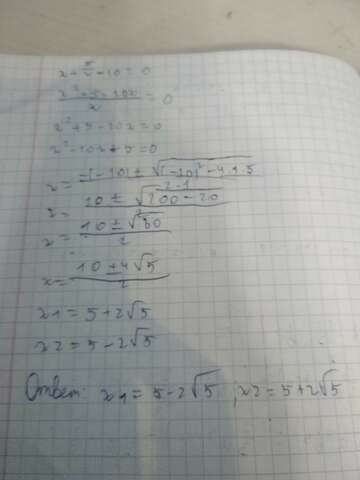 x + 5/x - 10 = 0
(x² + 5 - 10x)/x = 0
x² + 5 - 10x = 0
x² - 10x + 5 = 0
x = (-(-10) ± √((-10)² - 4·1·5))/(2·1)
x = (10 ± √(100 - 20))/2
x = (10 ± √80)/2
x = (10 ± 4√5)/2
x1 = 5 + 2√5
x2 = 5 - 2√5
Ответ: x1 = 5 - 2√5, x2 = 5 + 2√5